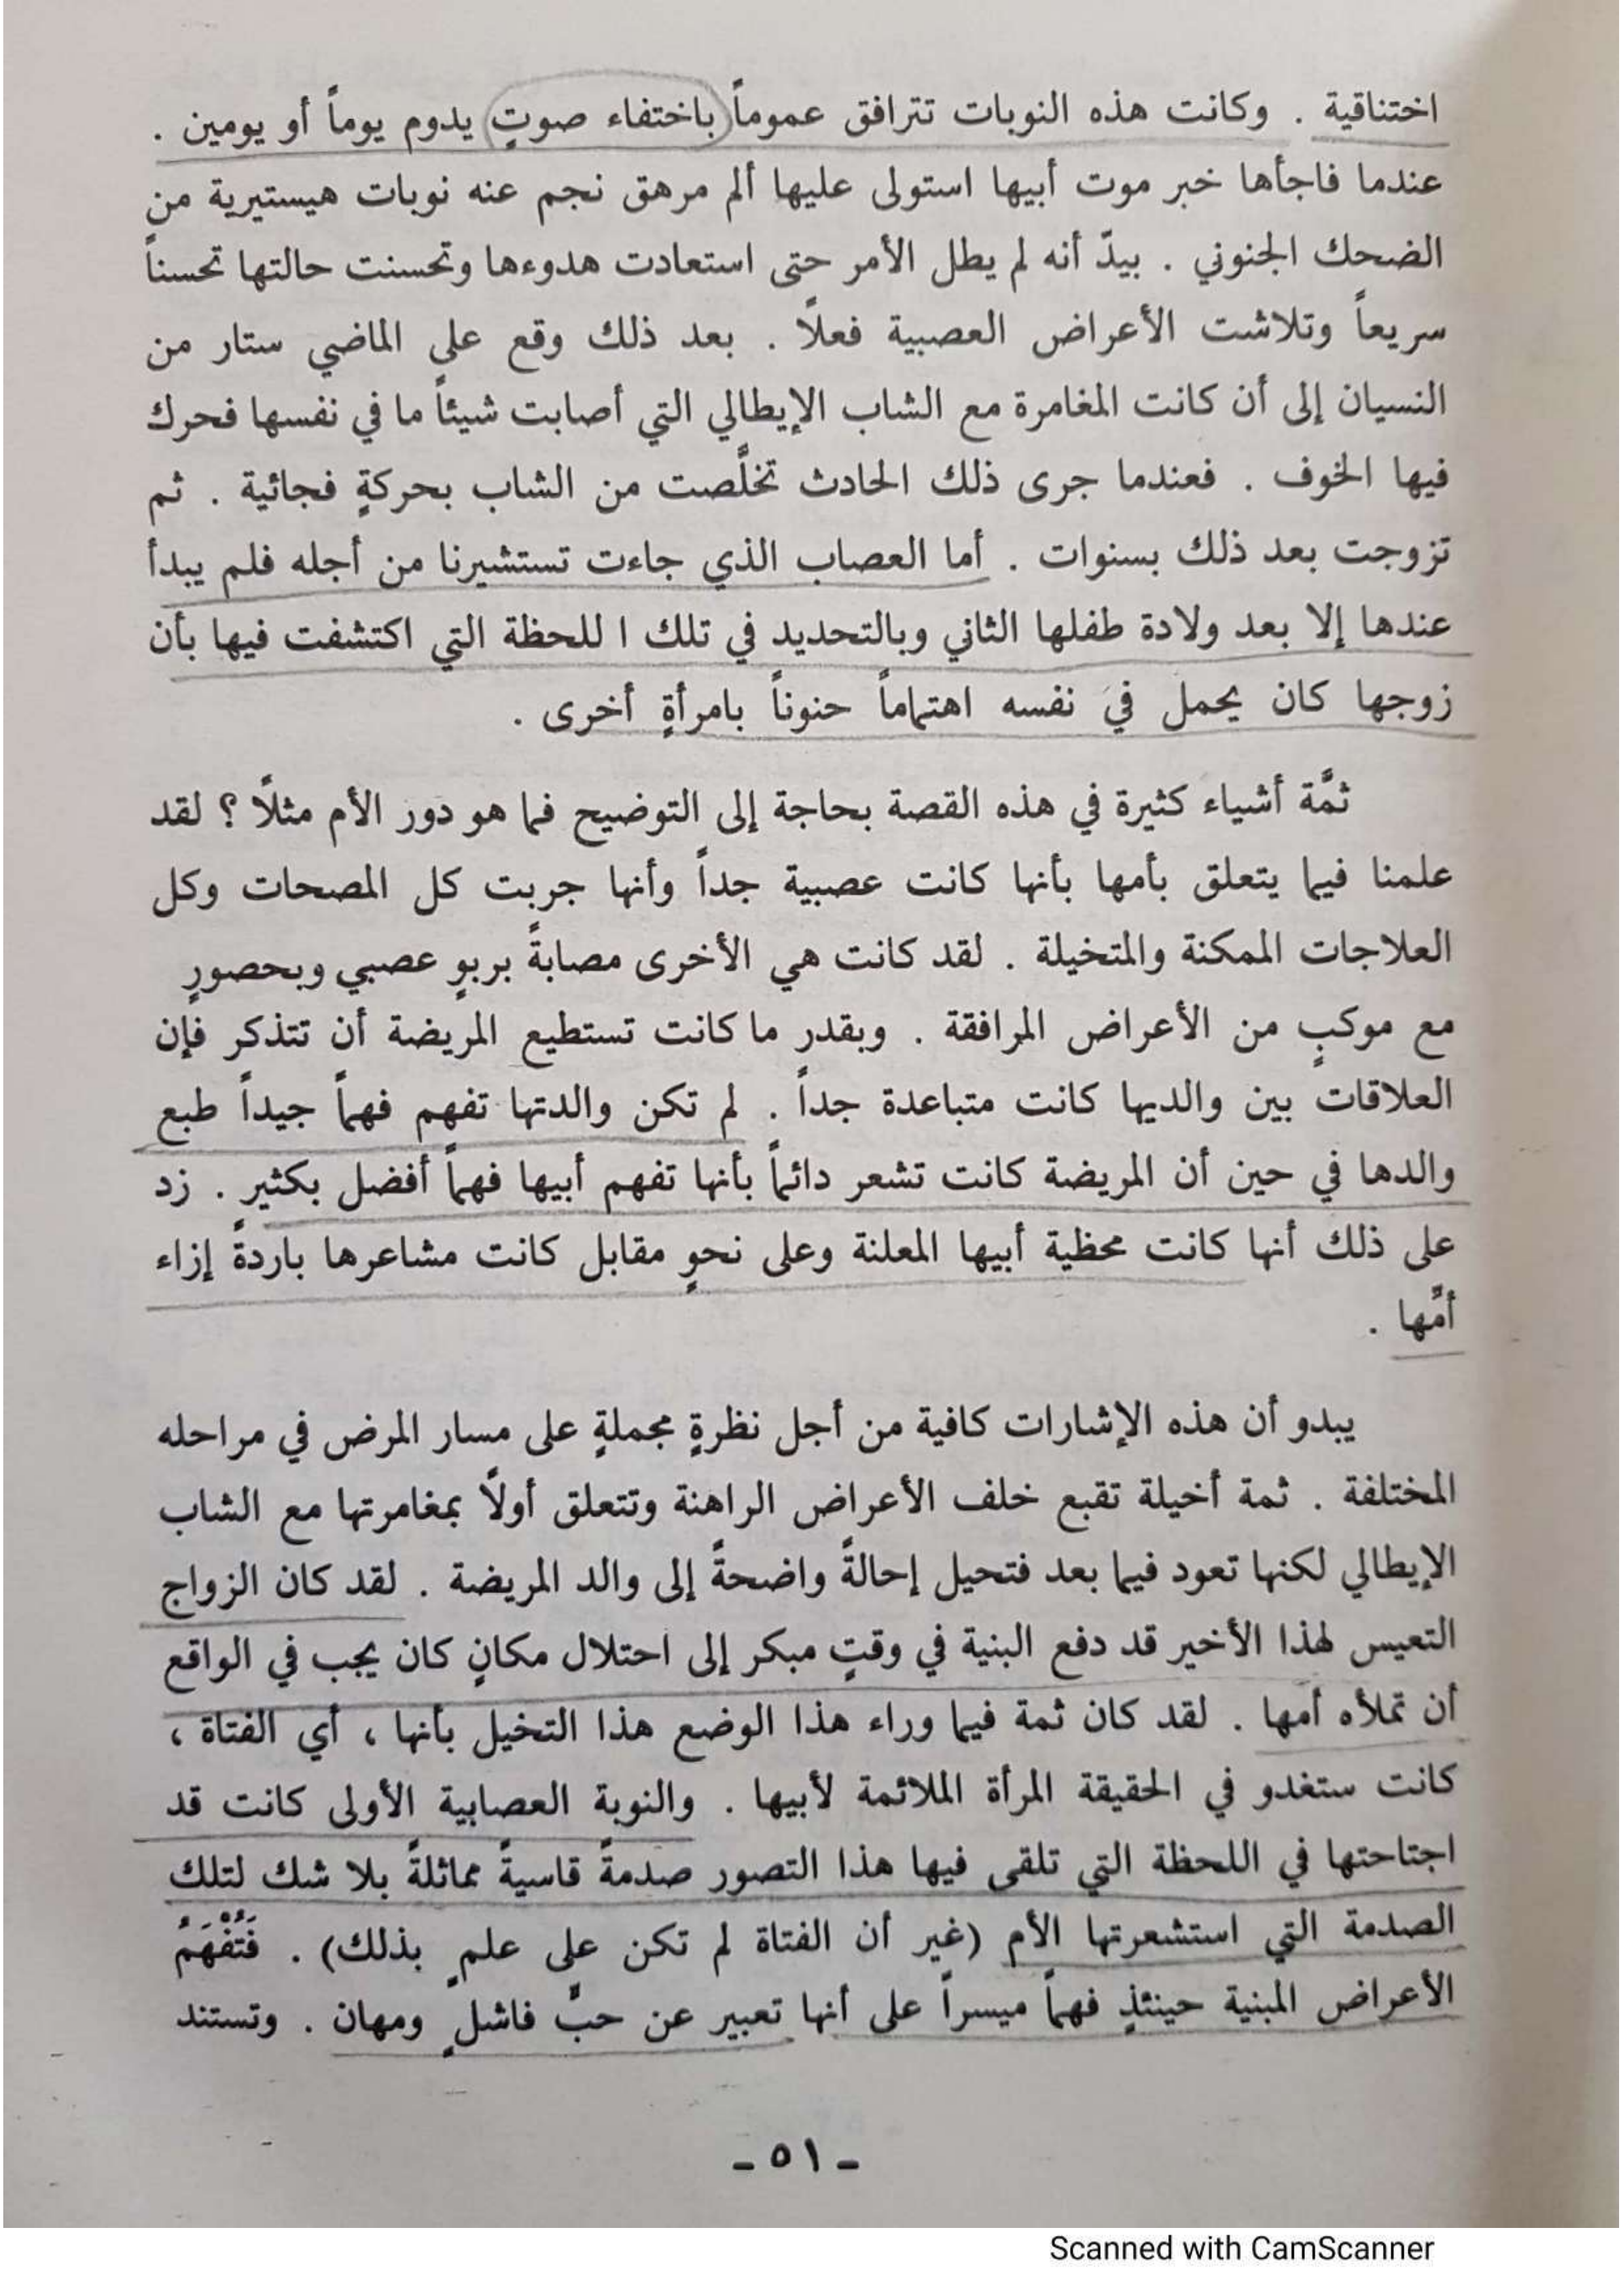 اختناقية . وكانت هذه النوبات تترافق عموماً باختفاء صوتٍ يدوم يوماً أو يومين .
عندما فاجأها خبر موت أبيها استولى عليها ألم مرهق نجم عنه نوبات هيستيرية من
الضحك الجنوني . بيدّ أنه لم يطل الأمر حتى استعادت هدوءها وتحسنت حالتها تحسناً
سريعاً وتلاشت الأعراض العصبية فعلاً . بعد ذلك وقع على الماضي ستار من
النسيان إلى أن كانت المغامرة مع الشاب الإيطالي التي أصابت شيئاً ما في نفسها فحرك
فيها الخوف . فعندما جرى ذلك الحادث تخلَّصت من الشاب بحركةٍ فجائية . ثم
تزوجت بعد ذلك بسنوات . أما العصاب الذي جاءت تستشيرنا من أجله فلم يبدأ
عندها إلا بعد ولادة طفلها الثاني وبالتحديد في تلك ا للحظة التي اكتشفت فيها بأن
زوجها كان يحمل في نفسه اهتماماً حنوناً بامرأةٍ أخرى .
ثمَّة أشياء كثيرة في هذه القصة بحاجة إلى التوضيح فما هو دور الأم مثلاً ؟ لقد
علمنا فيما يتعلق بأمها بأنها كانت عصبية جداً وأنها جربت كل المصحات وكل
العلاجات الممكنة والمتخيلة . لقد كانت هي الأخرى مصابةً بربوٍ عصبي وبحصورٍ
مع موكبٍ من الأعراض المرافقة . وبقدر ما كانت تستطيع المريضة أن تتذكر فإن
العلاقات بين والديها كانت متباعدة جداً . لم تكن والدتها تفهم فهماً جيداً طبع
والدها في حين أن المريضة كانت تشعر دائماً بأنها تفهم أبيها فهماً أفضل بكثيرٍ . زد
على ذلك أنها كانت محظية أبيها المعلنة وعلى نحوٍ مقابل كانت مشاعرها باردةً إزاء
أمَّها .
يبدو أن هذه الإشارات كافية من أجل نظرةٍ مجملةٍ على مسار المرض في مراحله
المختلفة . ثمة أخيلة تقبع خلف الأعراض الراهنة وتتعلق أولاً بمغامرتها مع الشاب
الإيطالي لكنها تعود فيما بعد فتحيل إحالةً واضحةً إلى والد المريضة . لقد كان الزواج
التعيس لهذا الأخير قد دفع البنية في وقتٍ مبكر إلى احتلال مكانٍ كان يجب في الواقع
أن تملأه أمها . لقد كان ثمة فيما وراء هذا الوضع هذا التخيل بأنها ، أي الفتاة ،
كانت ستغدو في الحقيقة المرأة الملائمة لأبيها . والنوبة العصابية الأولى كانت قد
اجتاحتها في اللحظة التي تلقى فيها هذا التصور صدمةً قاسيةً مماثلةً بلا شك لتلك
الصدمة التي استشعرتها الأم (غير أن الفتاة لم تكن على علمٍ بذلك) . فَتُفْهَمُ
الأعراض المبنية حينئذٍ فهماً ميسراً على أنها تعبير عن حبٍّ فاشلٍ ومهان . وتستند
- ٥١ -
Scanned with CamScanner